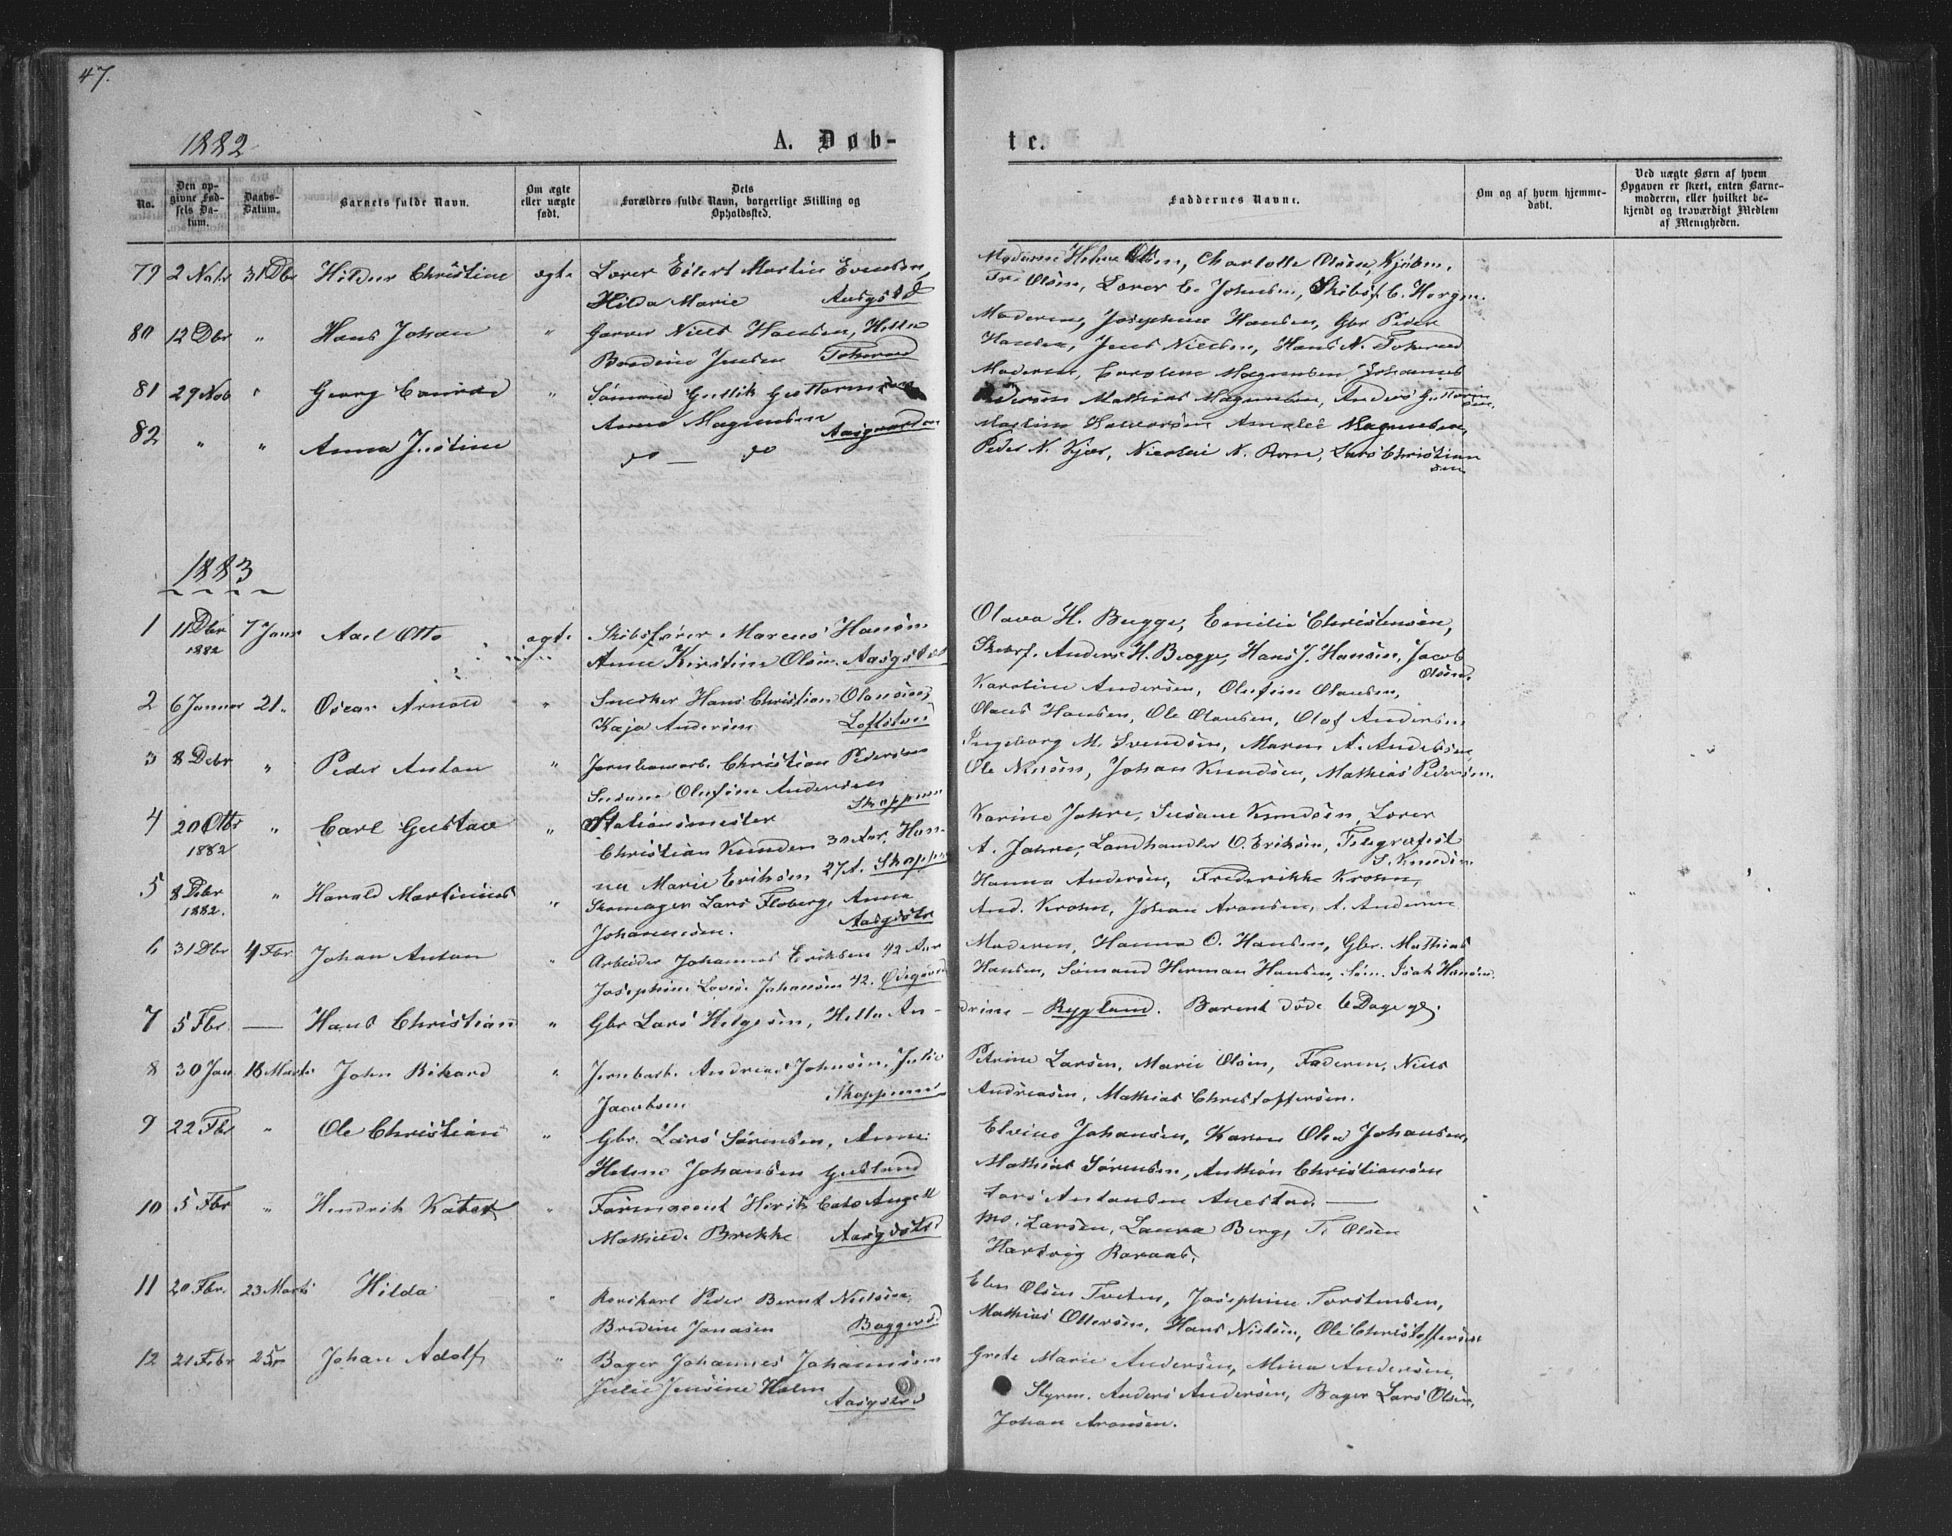 47.
1882
A. Døb-
te.
No.
Den op-
givne Fød-
sels Da-
tum.
Daabs-
Datum.
Barnets fulde Navn.
Om ægte
eller uægte
født.
Dets
Forældres fulde Navn, borgerlige Stilling og
Opholdssted.
Faddernes Navne.
Om og af hvem hjemme-
døbt.
Ved uægte Børn af hvem
Opgaven er skeet, enten Barne-
moderen, eller hvilket be-
kjendt og troværdigt Medlem
af Menigheden.
79 2 Nobr 31 Dbr Hildur Christine ægte Lærer Eilert Martin Evensen,
Hilda Marie Aasgstrd
Charlotte Olsen, Kjøbm.
Fr. Olsen, Lærer C. Johnsen, Skibsf. C. Horgen.
80 12 Dbr " Hans Johan " Garver Niels Hansen, Helle
Bredine Jensen
Moderen, Josephine Hansen, Gbr Peder
Hansen, Jens Nielsen, Hans N.
81 29 Nob " Georg Conrad " Sømand Gullik Guttormsen
Anne Magnussen Aasgaarden
Moderen, Caroline Magnussen Johannes
Pedersen Mathias Magnussen, Anders Guttorm
sen.
82 " " Anna Justine do — do
Martine Halvorsen Amalie Magnussen,
Peder N. Kjær, Nicolai N. Lars Christian
sen
1883
1 11 Dbr 7 Janr Axel Otto ægte Skibsfører Marcus Hansen
1882
Anne Kirstine Olsen. Aasgstrd
Olava H. Bugge, Emilie Christensen,
Skibsf. Anders H. Bugge, Hans J. Hansen, Jacob
Olsen.
2 6 Januar 21. Oscar Arnold " Snedker Hans Christian Olausen,
Kaja Andersen
Karoline Andersen, Olufine Olausen,
Olaus Hansen, Ole Olausen, Olaf Andersen
3 8 Debr " Peder Anton " Jernbanearb. Christian Pedersen
Susane Olufine Andersen
Skoppum
Ingeborg M. Svendsen, Maren A. Andersen,
Ole Nilsen, Johan Knudsen, Mathias Pedersen.
4 20 Otbr " Carl Gustav " Stationsmester
1882
Christian Knudsen 30 Aar, Han-
na Marie Eriksen 27 A. Skoppum
Karine Jahre, Susane Knudsen, Lærer
A. Jahre, Landhandler O. Eriksen, Telegrafist
S. Knudsen
5 8 Debr " Harald Martinius " Skomager Lars Floberg, Anna
1882.
Johannesen. Aasgstr
Hanna Andersen, Frederikke Krohn,
And. Krohn, Johan Aronsen, A. Andersen
6 31 Dbr 4 Fbr. Johan Anton " Arbeider Johannes Eriksen 42 Aar
Josephine Lovise Johansen 42.
Moderen, Hanna O. Hansen, Gbr. Mathias
Hansen, Sømand Herman Hansen, Søm. Isak Hansen.
7 5 Fbr. — Hans Christian " Gbr Lars Helgesen, Helle An-
drine - Rygland. Barnet døde 6 Dage gl.
8 30 Jan 18 Marts John Rikard " Jernbarb. Andreas Johnsen, Julie
Jacobsen Skoppum
Petrine Larsen, Marie Olsen, Faderen, Niels
Andreasen, Mathias Christoffersen.
9 22 Fbr " Ole Christian " Gbr. Lars Sørensen, Anne
Helene Johansen Gusland
Johansen, Karen Olea Johansen,
Mathias Sørensen, Anthon Christiansen
Lars Antonsen Auestad. —
10 5 Fbr " Hendrik " Farmaceut Hirik Cato Angell
Mathilde Brekke Aasgdstd
Mo. Larsen, Laura Berg, T. Olsen
Hartvig
11 20 Fbr. 23 Marts Hilda " Peder Bernt Nielsen,
Bredine Jonasen
Elen Olsen Josephine Torstensen,
Mathias Ottersen, Hans Nielsen, Ole Christoffersen
12 21 Febr 25 Johan Adolf " Bager Johannes Johannesen
Julie Jensine Holm
Aasgstrd
Grete Marie Andersen, Mina Andersen,
Styrm. Anders Andersen, Bager Lars Olsen,
Johan Aronsen.